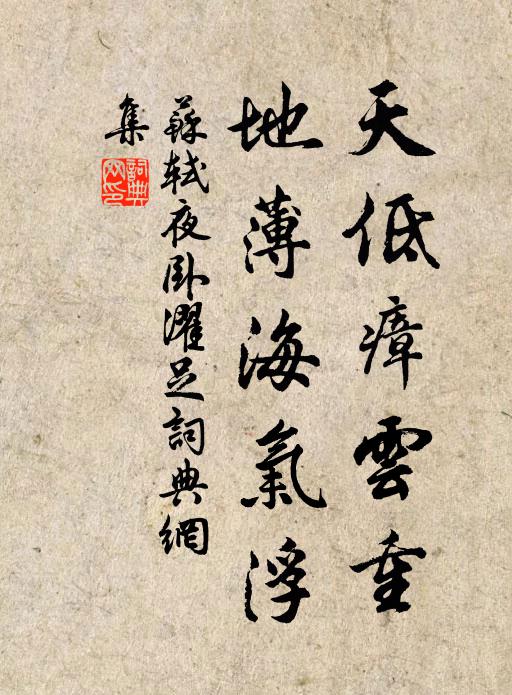 天低瘴雲重
地薄海氣浮
蘇軾夜臥濯足詞典網
集
詞典網印